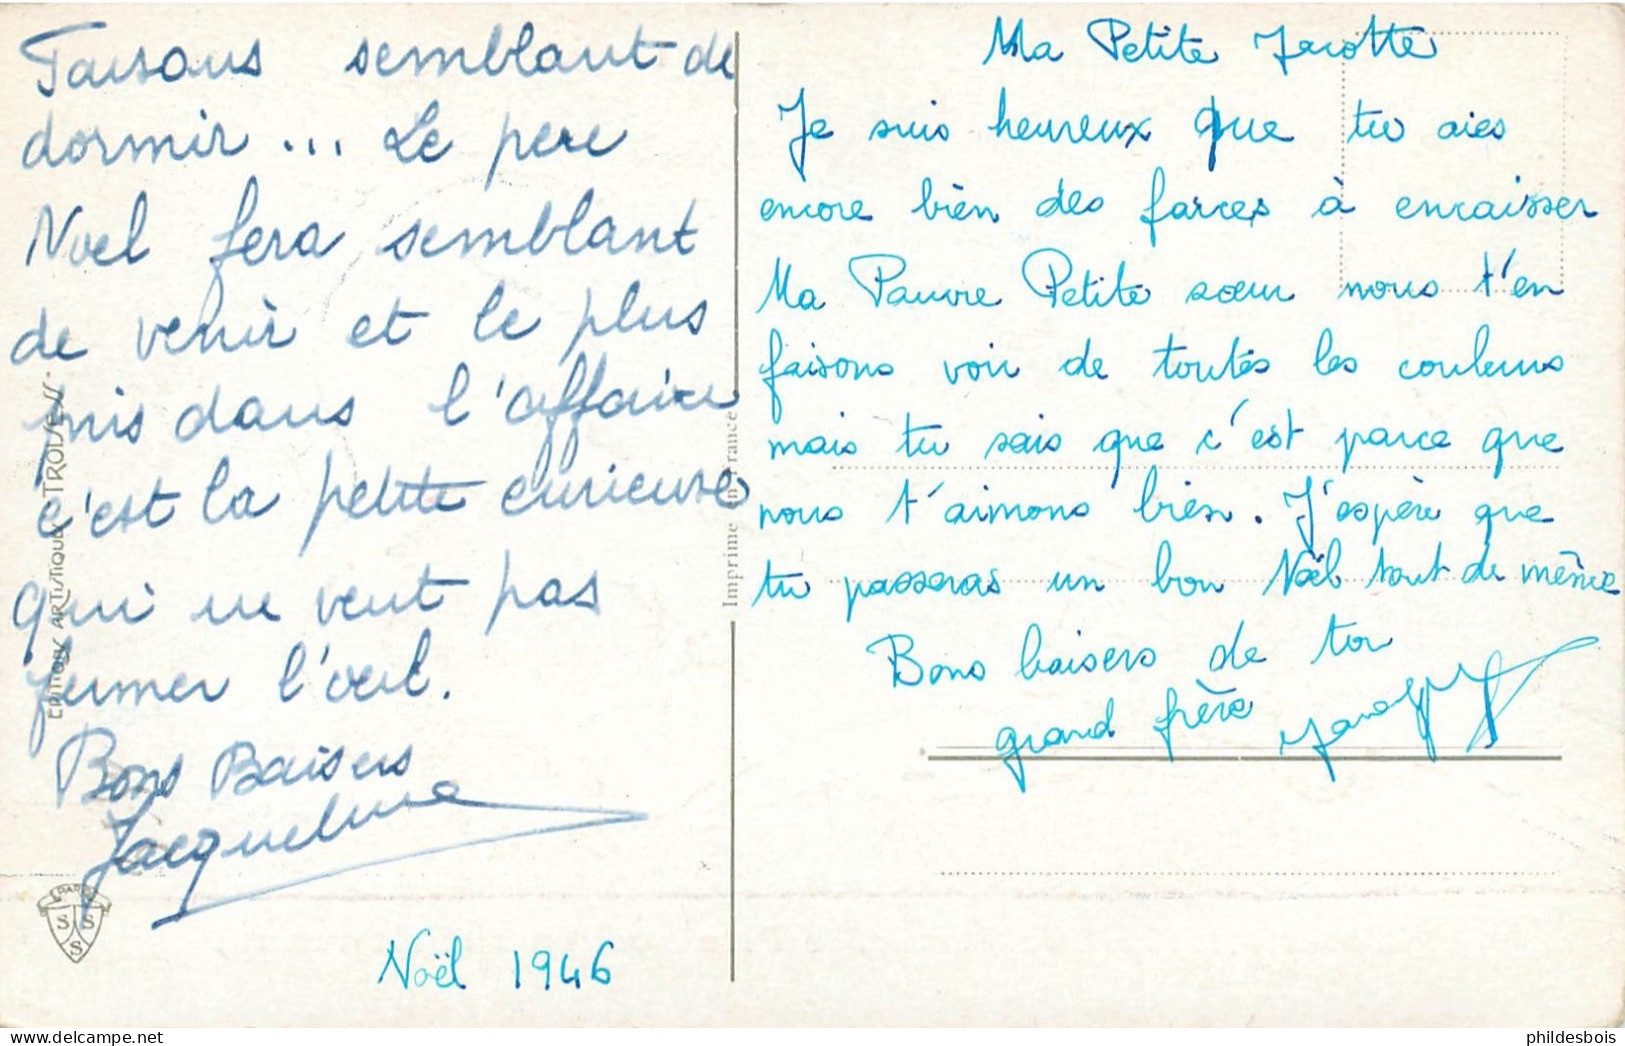 Faisons semblant de
dormir ... Le pere
Noel fera semblant
de venir et le plus
pris dans l'affaire
c'est la petite curieuse
qui ne veut pas
fermer l'oeil.
Bons Baisers
Jacqueline
Noël 1946
EDITIONS ARTISTIQUES
PARIS
S S
S
Imprimé en France
Ma Petite Jacotte
Je suis heureux que tu aies
encore bien des farces à encaisser
Ma Pauvre Petite sœur nous t'en
faisons voir de toutes les couleurs
mais tu sais que c'est parce que
nous t'aimons bien. J'espère que
tu passeras un bon Noël tout de même
Bons baisers de ton
grand frère
phildesbois